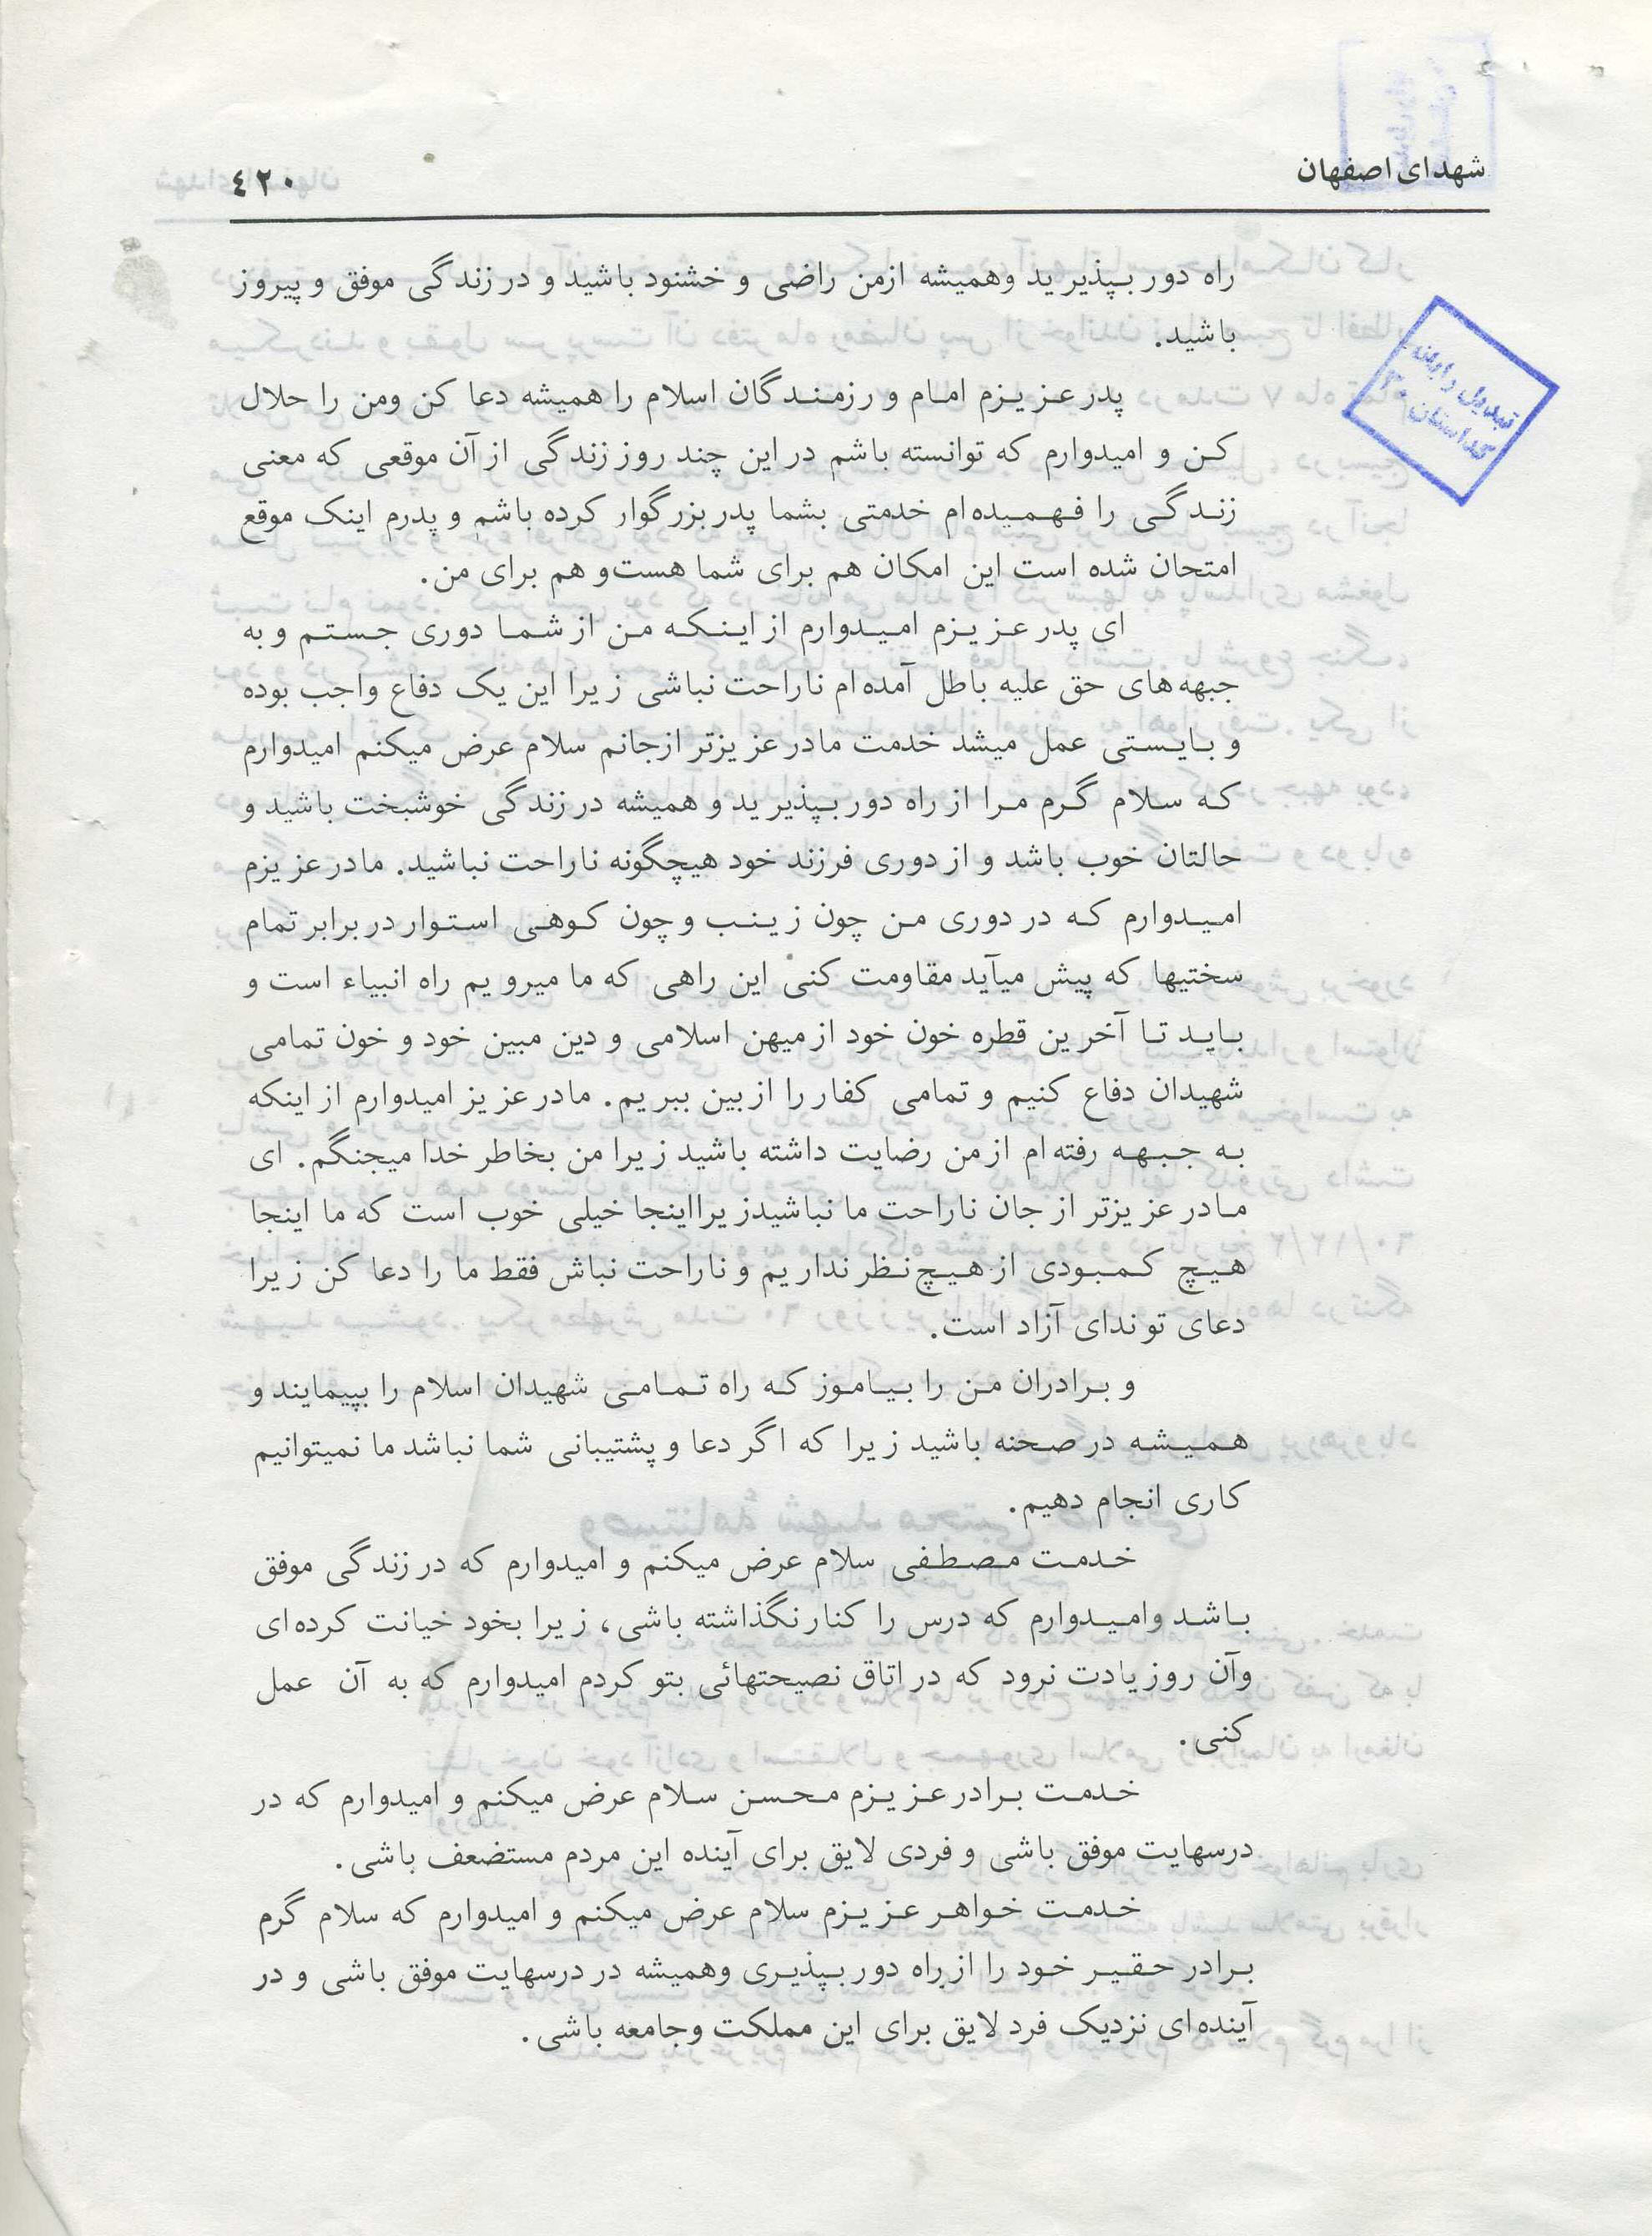 شهدای اصفهان
٤٢٠
راه دور بپذیرید وهمیشه ازمن راضی و خشنود باشید و در زندگی موفق و پیروز
باشید.
پدر عزیزم امام و رزمندگان اسلام را همیشه دعا کن ومن را حلال
کن و امیدوارم که توانسته باشم در این چند روز زندگی از آن موقعی که معنی
زندگی را فهمیده‌ام خدمتی بشما پدر بزرگوار کرده باشم و پدرم اینک موقع
امتحان شده است این امکان هم برای شما هست و هم برای من.
ای پدر عزیزم امیدوارم از اینکه من از شما دوری جستم و به
جبهه‌های حق علیه باطل آمده‌ام ناراحت نباشی زیرا این یک دفاع واجب بوده
و بایستی عمل میشد خدمت مادر عزیزتر ازجانم سلام عرض میکنم امیدوارم
که سلام گرم مرا از راه دور بپذیرید و همیشه در زندگی خوشبخت باشید و
حالتان خوب باشد و از دوری فرزند خود هیچگونه ناراحت نباشید. مادر عزیزم
امیدوارم که در دوری من چون زینب و چون کوهی استوار در برابر تمام
سختیها که پیش میآید مقاومت کنی این راهی که ما میرویم راه انبیاء است و
باید تا آخرین قطره خون خود از میهن اسلامی و دین مبین خود و خون تمامی
شهیدان دفاع کنیم و تمامی کفار را از بین ببریم. مادر عزیز امیدوارم از اینکه
به جبهه رفته‌ام از من رضایت داشته باشید زیرا من بخاطر خدا میجنگم. ای
مادر عزیزتر از جان ناراحت ما نباشیدزیرااینجا خیلی خوب است که ما اینجا
هیچ کمبودی از هیچ نظر نداریم و ناراحت نباش فقط ما را دعا کن زیرا
دعای تو ندای آزاد است.
و برادران من را بیاموز که راه تمامی شهیدان اسلام را بپیمایند و
همیشه در صحنه باشید زیرا که اگر دعا و پشتیبانی شما نباشد ما نمیتوانیم
کاری انجام دهیم.
خدمت مصطفی سلام عرض میکنم و امیدوارم که در زندگی موفق
باشد وامیدوارم که درس را کنار نگذاشته باشی، زیرا بخود خیانت کرده‌ای
وآن روز یادت نرود که در اتاق نصیحتهائی بتو کردم امیدوارم که به آن عمل
کنی.
خدمت برادر عزیزم محسن سلام عرض میکنم و امیدوارم که در
درسهایت موفق باشی و فردی لایق برای آینده این مردم مستضعف باشی.
خدمت خواهر عزیزم سلام عرض میکنم و امیدوارم که سلام گرم
برادر حقیر خود را از راه دور بپذیری وهمیشه در درسهایت موفق باشی و در
آینده‌ای نزدیک فرد لایق برای این مملکت وجامعه باشی.